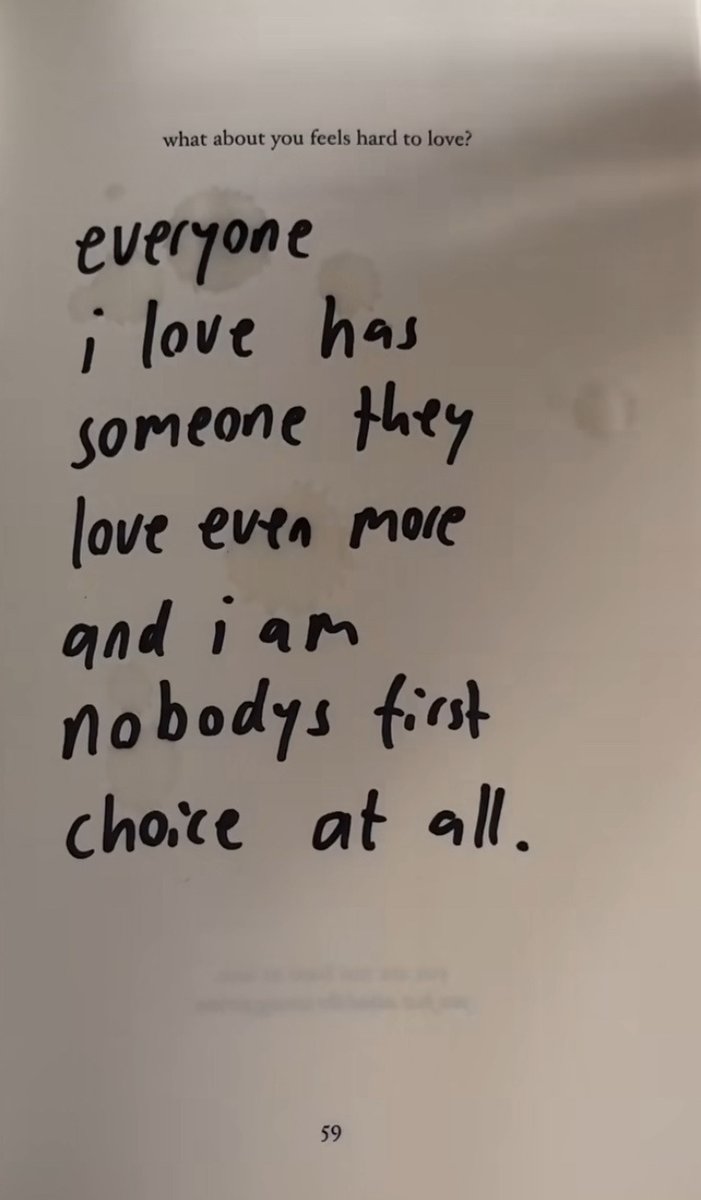 what about you feels hard to love?
everyone
i love has
someone they
love even more
and i am
nobodys first
choice at all.
59